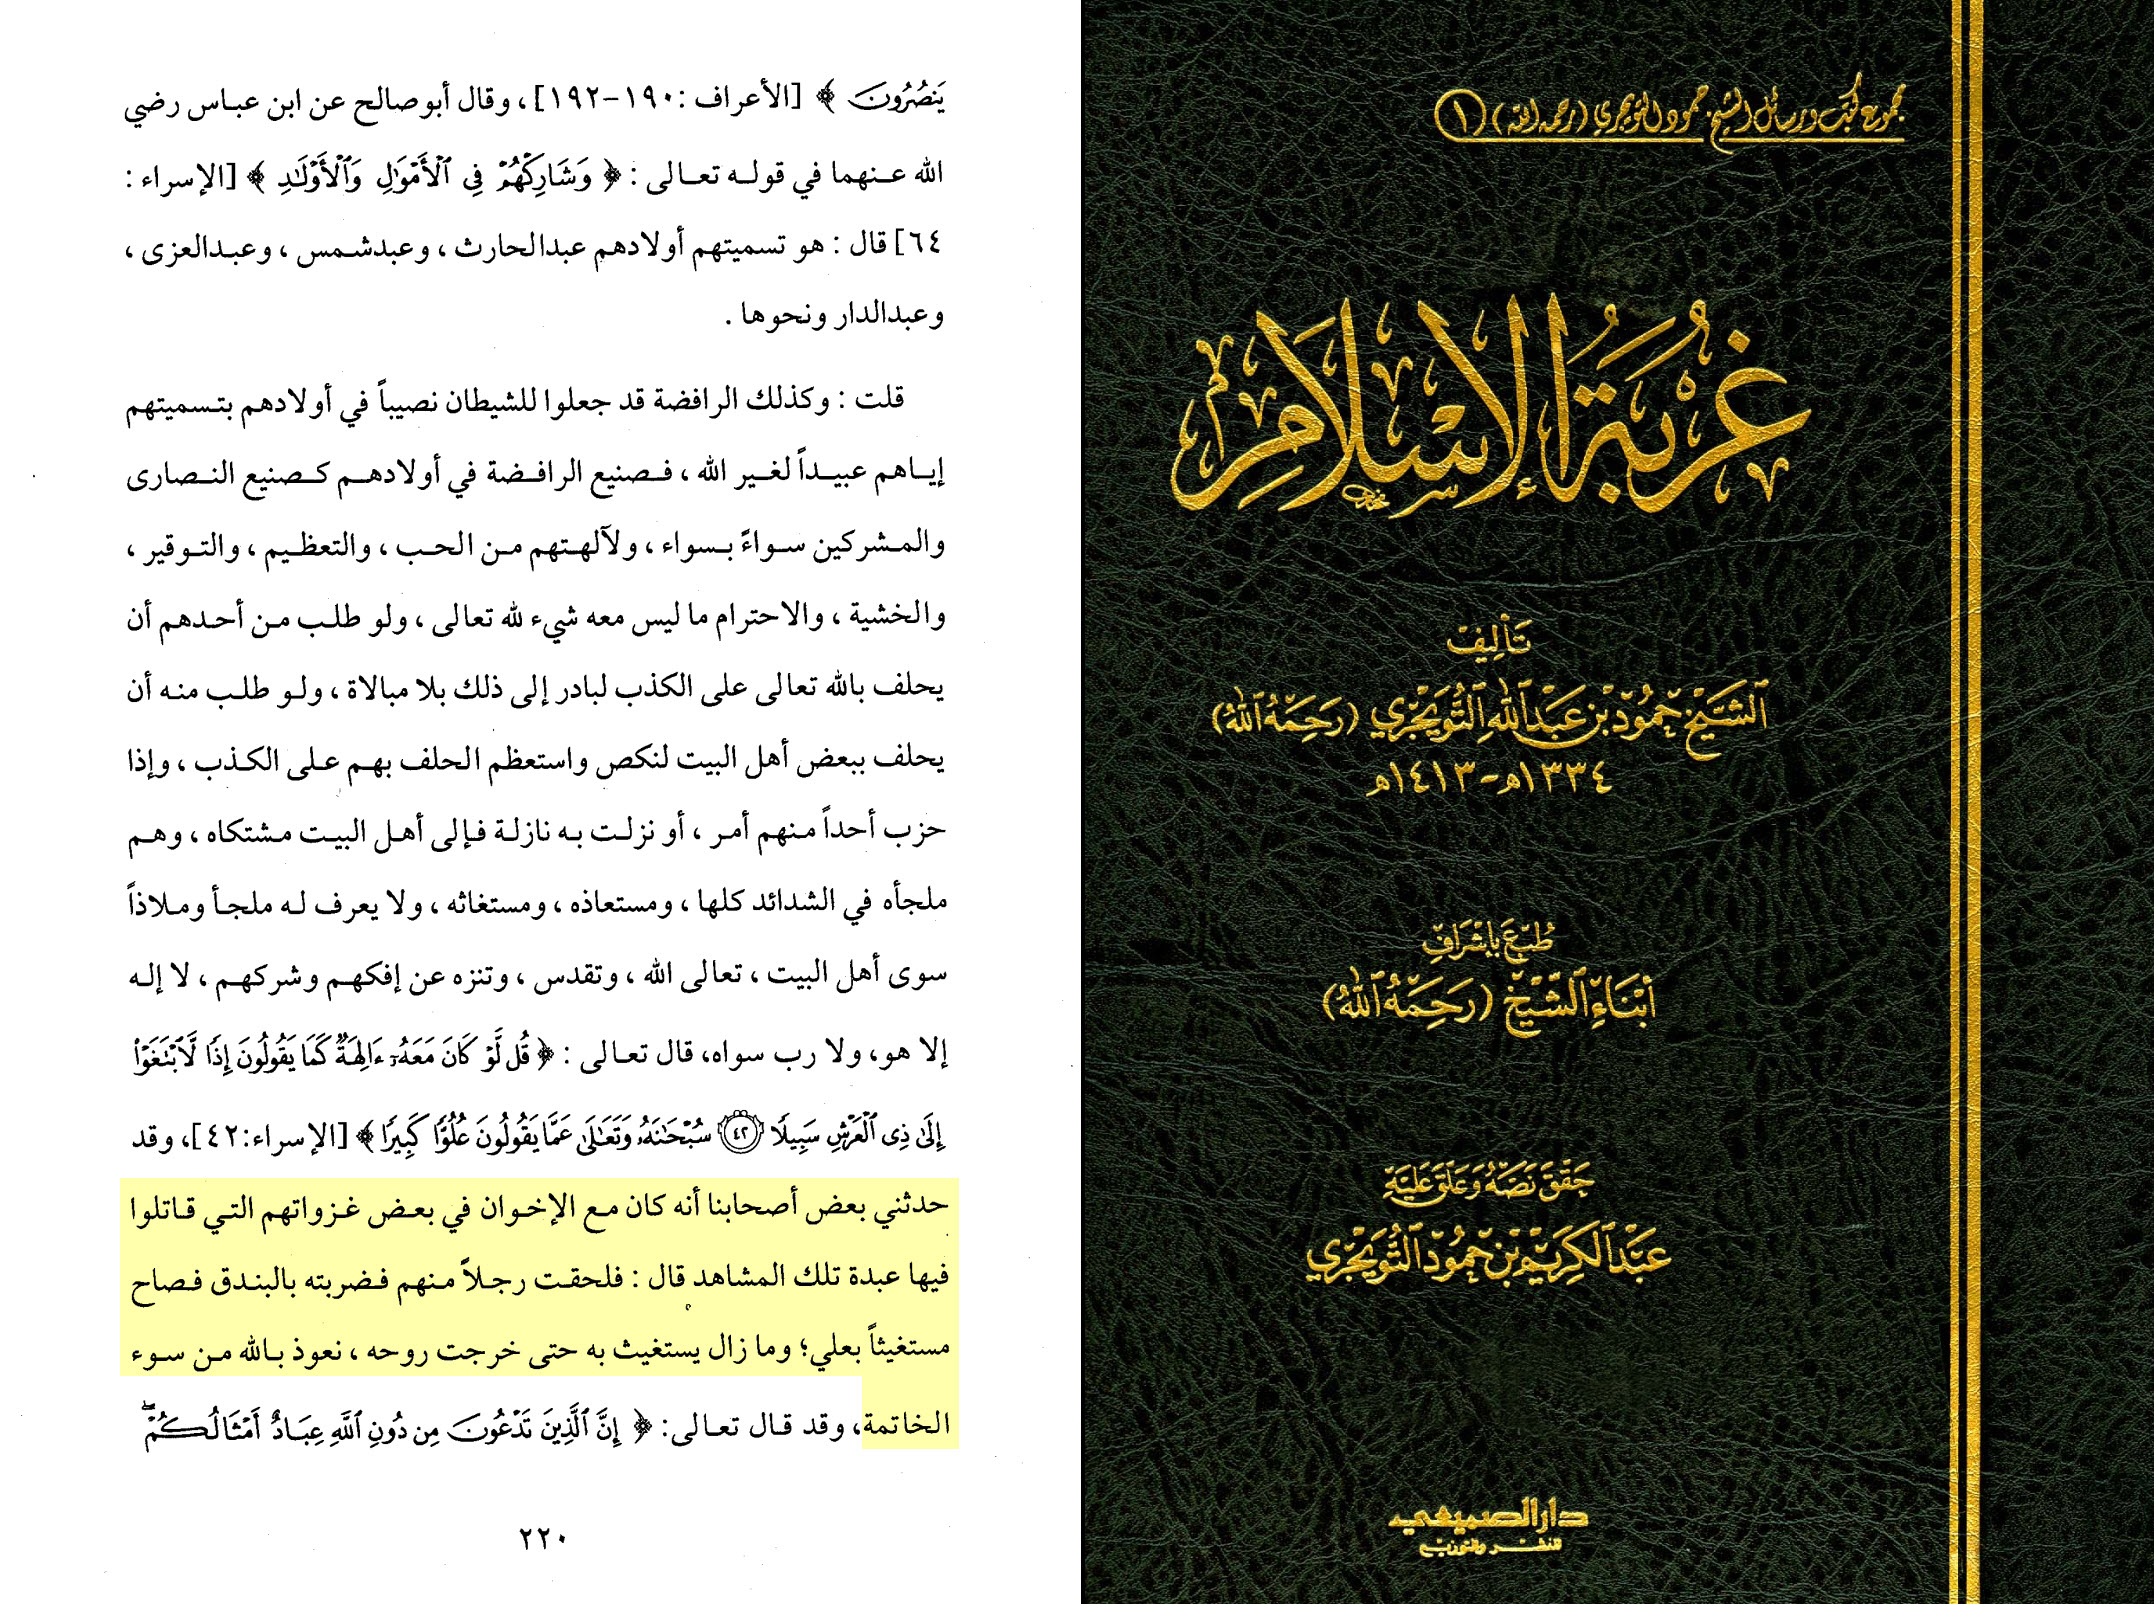 ينصرون ﴾ [الأعراف : ١٩٠-١٩٢] ، وقال أبو صالح عن ابن عباس رضي
الله عنهما في قوله تعالى : ﴿ وَشَارِكْهُمْ فِى ٱلْأَمْوَٰلِ وَٱلْأَوْلَٰدِ ﴾ [الإسراء :
٦٤] قال : هو تسميتهم أولادهم عبدالحارث ، وعبدشمس ، وعبدالعزى ،
وعبدالدار ونحوها .
قلت : وكذلك الرافضة قد جعلوا للشيطان نصيباً في أولادهم بتسميتهم
إياهم عبيداً لغير الله ، فصنيع الرافضة في أولادهم كصنيع النصارى
والمشركين سواءً بسواء ، ولآلهتهم من الحب ، والتعظيم ، والتوقير ،
والخشية ، والاحترام ما ليس معه شيء لله تعالى ، ولو طلب من أحدهم أن
يحلف بالله تعالى على الكذب لبادر إلى ذلك بلا مبالاة ، ولو طلب منه أن
يحلف ببعض أهل البيت لنكص واستعظم الحلف بهم على الكذب ، وإذا
حزب أحداً منهم أمر ، أو نزلت به نازلة فإلى أهل البيت مشتكاه ، وهم
ملجأه في الشدائد كلها ، ومستعاذه ، ومستغاثه ، ولا يعرف له ملجأ وملاذاً
سوى أهل البيت ، تعالى الله ، وتقدس ، وتنزه عن إفكهم وشركهم ، لا إله
إلا هو، ولا رب سواه، قال تعالى : ﴿ قُل لَّوْ كَانَ مَعَهُۥٓ ءَالِهَةٌ كَمَا يَقُولُونَ إِذًا لَّٱبْتَغَوْا۟
إِلَىٰ ذِى ٱلْعَرْشِ سَبِيلًا ٤٢ سُبْحَٰنَهُۥ وَتَعَٰلَىٰ عَمَّا يَقُولُونَ عُلُوًّا كَبِيرًا ﴾ [الإسراء:٤٢]، وقد
حدثني بعض أصحابنا أنه كان مع الإخوان في بعض غزواتهم التي قاتلوا
فيها عبدة تلك المشاهد قال : فلحقت رجلاً منهم فضربته بالبندق فصاح
مستغيثاً بعلي؛ وما زال يستغيث به حتى خرجت روحه ، نعوذ بالله من سوء
الخاتمة، وقد قال تعالى: ﴿ إِنَّ ٱلَّذِينَ تَدْعُونَ مِن دُونِ ٱللَّهِ عِبَادٌ أَمْثَالُكُمْ ۖ
٢٢٠
مجموع كتب ورسائل الشيخ حمود التويجري (رحمه الله) (١)
غُرْبَةُ الإِسْلَامِ
تَأليفُ
الشَّيْخ حمُود بْن عَبْد اللهِ التُّوَيْجرِي (رَحِمَهُ اللهُ)
١٣٣٤هـ-١٤١٣هـ
طُبِعَ بِإشْرَافِ
أبْنَاءِ الشَّيْخ (رَحِمَهُ اللهُ)
حَقَّقَ نَصَّهُ وَعَلَّقَ عَلَيْهِ
عَبْد الكَرِيم بْن حمُود التُّوَيْجرِي
دار الصميعي
للنشر والتوزيع